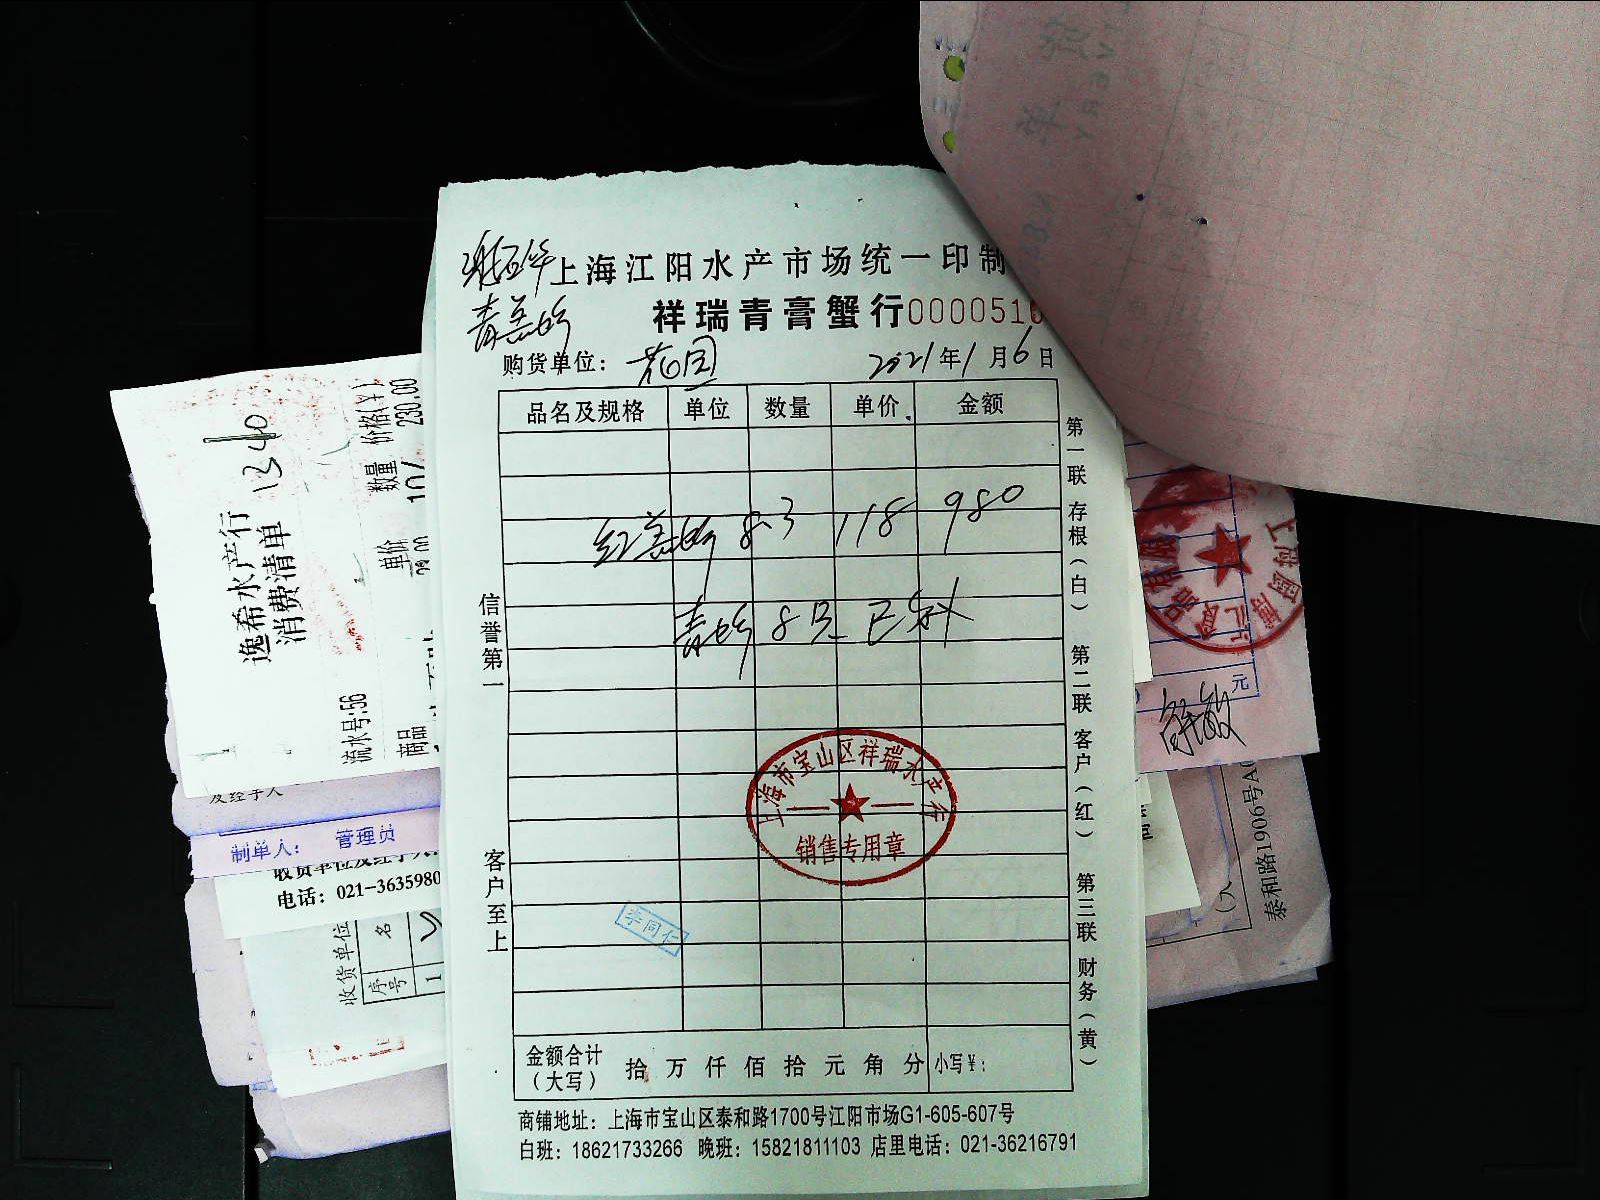 上海江阳水产市场统一印制
祥瑞青膏蟹行 000051
购货单位： 花园 2021年1月6日
品名及规格 单位 数量 单价 金额
红膏 8.3 118 980
青 8只 已
信誉第一
客户至上
第一联 存根（白） 第二联 客户（红） 第三联 财务（黄）
上海市宝山区祥瑞水产行
销售专用章
李同仁
金额合计（大写） 拾 万 仟 佰 拾 元 角 分 小写￥：
商铺地址：上海市宝山区泰和路1700号江阳市场G1-605-607号
白班：18621733266 晚班：15821811103 店里电话：021-36216791
逸希水产行
消费清单
1340
流水号:56
商品 单价 数量 价格(￥)
230.00
制单人： 管理员
收货单位及经手人:
电话：021-3635980
收货单位
序号 名
1
元
泰和路1906号A